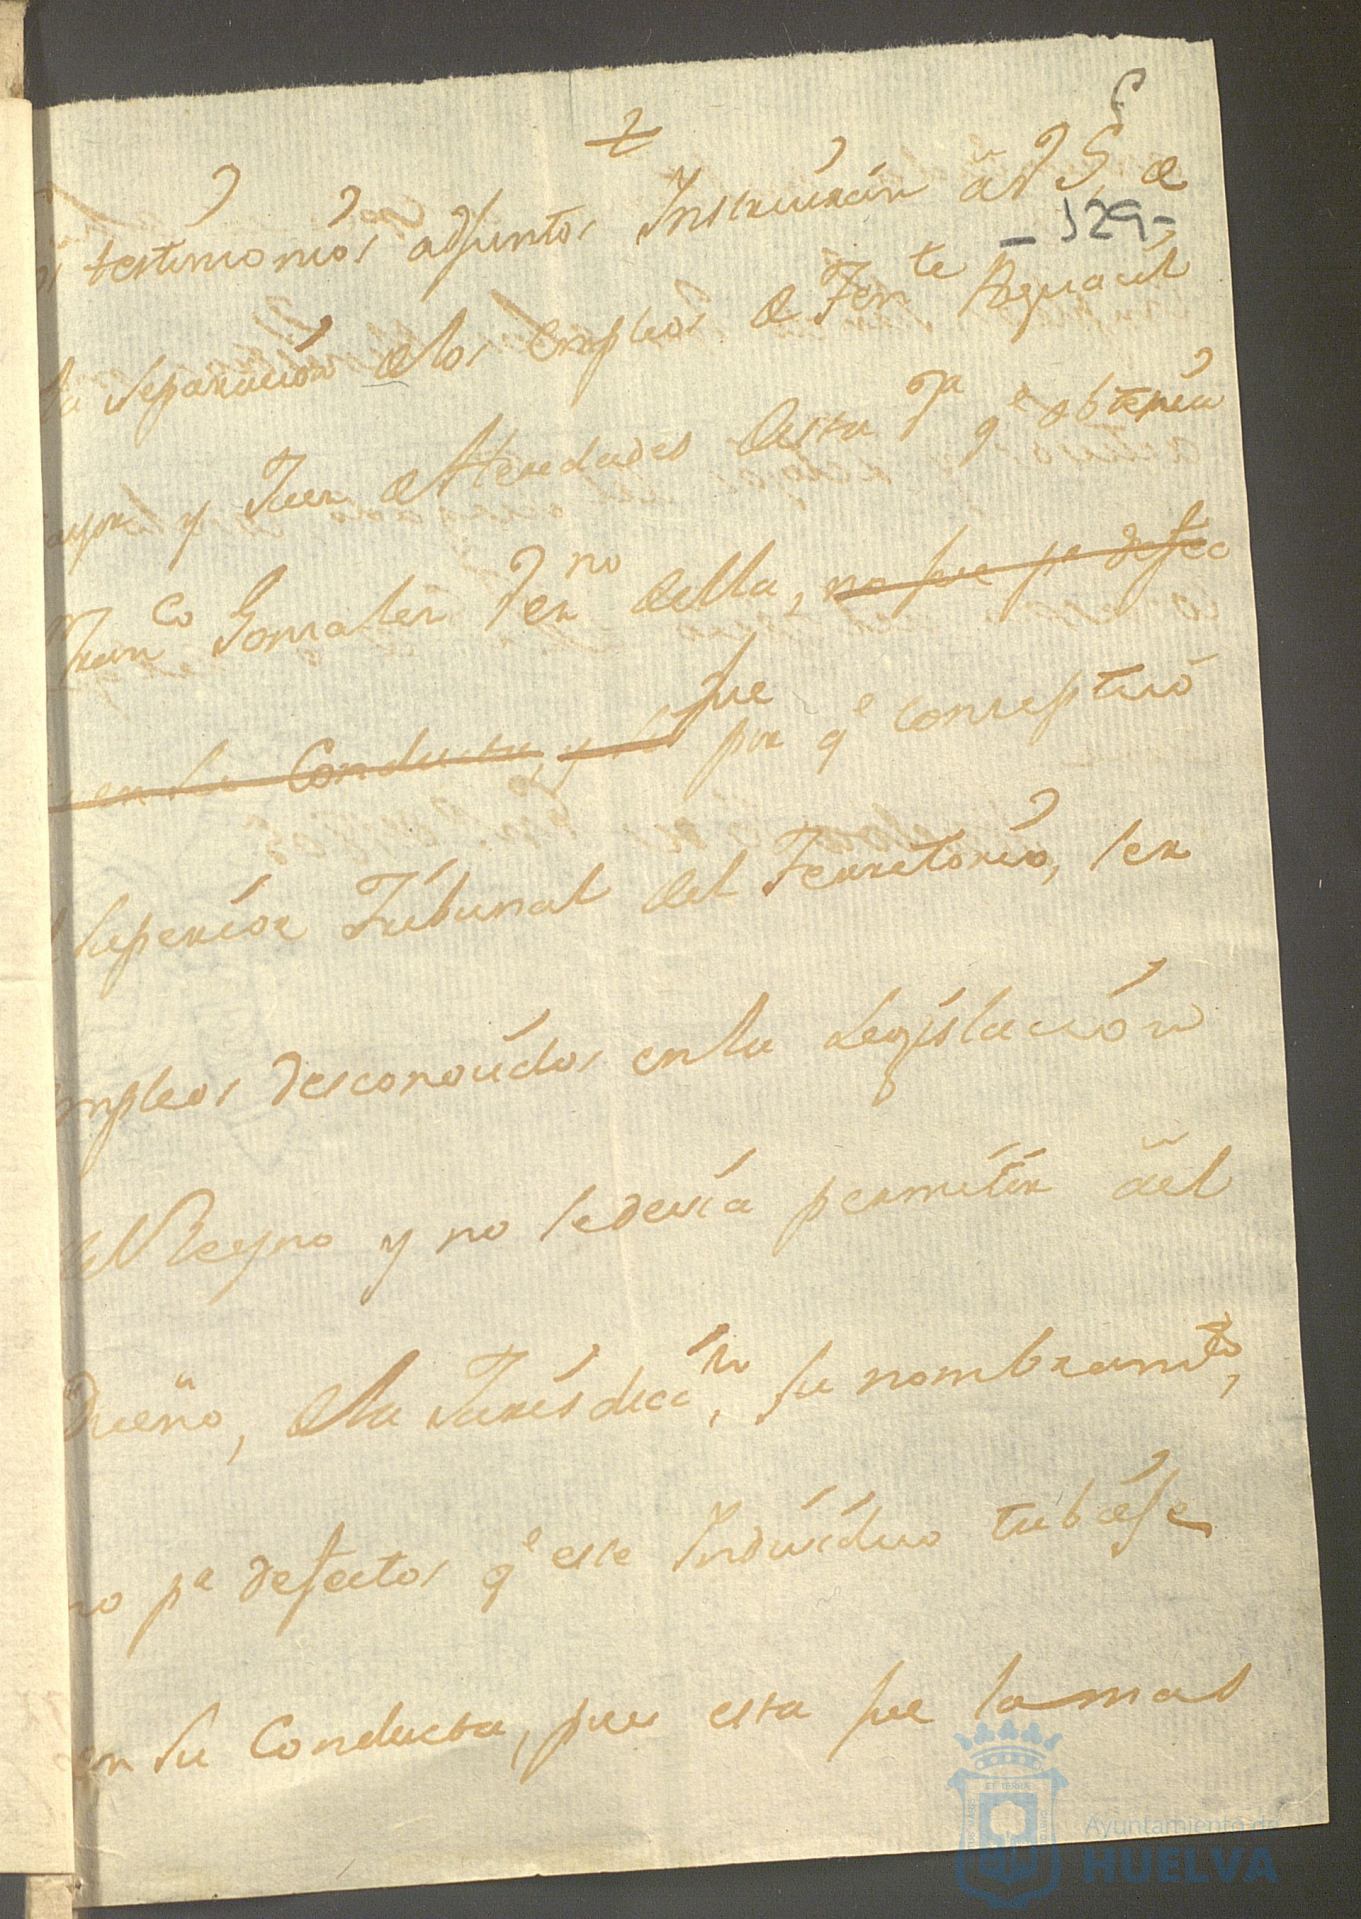 testimonios adjuntos Instruirán á V S, de
- 129-
la separación de los empleos de Ten.te Alguacil
mayor y Juez de Heredades desta V.a q.e obtenia
Fran.co Gonzalez Vez.no della, no fue p.r defec
en la Conducta, y si fue por q.e conceptuó
el Superior Tribunal del Territorio, ser
empleos desconocidos en la Legislación
del Reyno y no se devía permitir áel
Dueño, de la Jurisdicc.n, su nombram.to,
no p.r defectos q.e este Individuo tubiese
en su Conducta, pues esta fue la mas
Ayuntamiento de
HUELVA